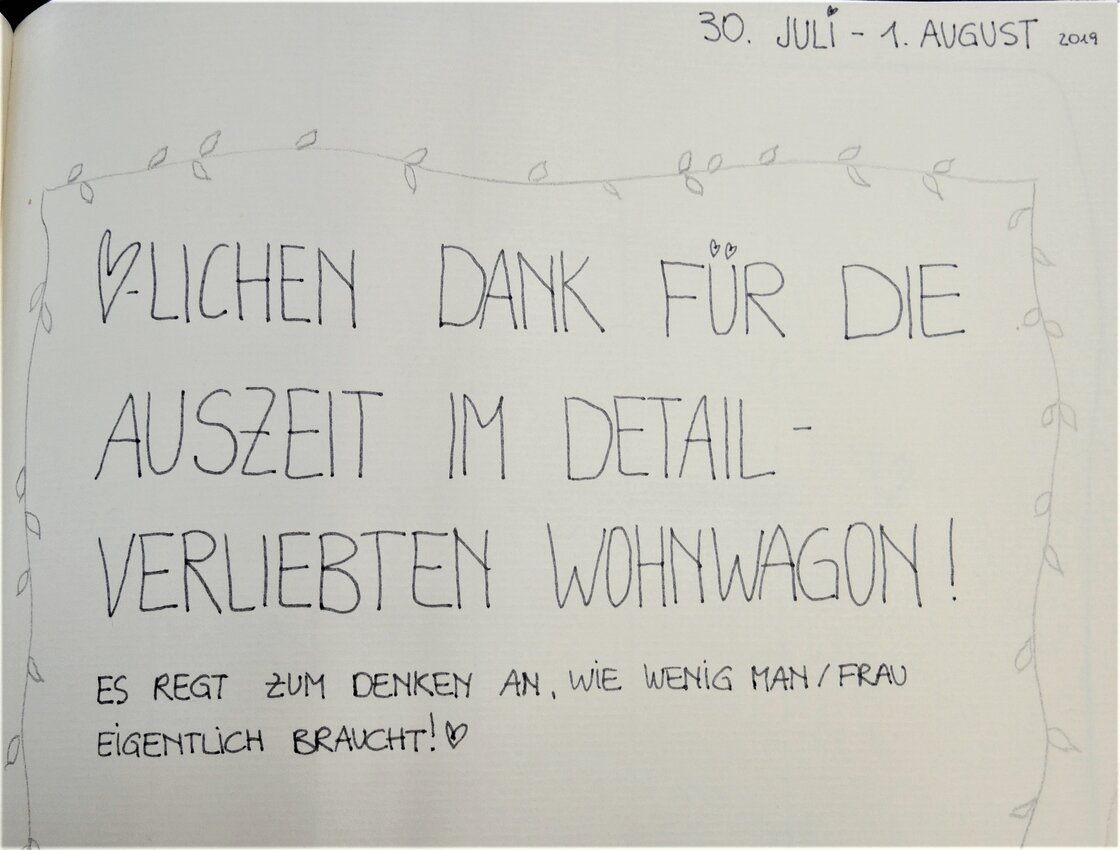 30. JULI - 1. AUGUST 2019
♡-LICHEN DANK FÜR DIE
AUSZEIT IM DETAIL-
VERLIEBTEN WOHNWAGON!
ES REGT ZUM DENKEN AN, WIE WENIG MAN/FRAU
EIGENTLICH BRAUCHT!♡